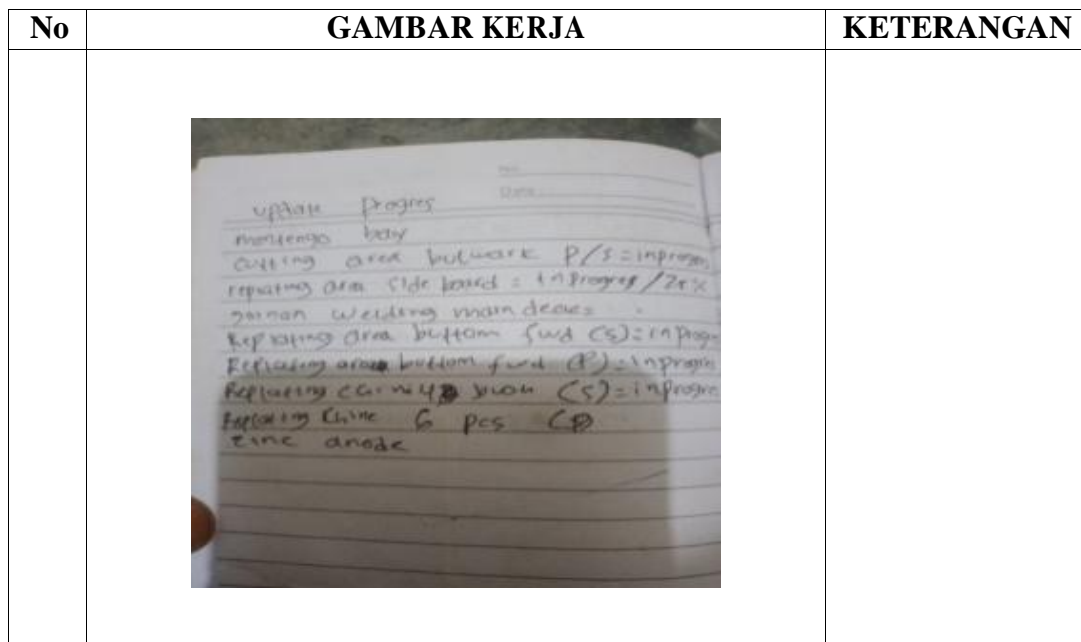 No
GAMBAR KERJA
KETERANGAN
No
Date
update progres
montengo bay
cutting area bulwark P/S = inprogres
replating area side board = inprogres / 
welding main deck =
Replating area buttom fwd (S) = inprog
Replating area buttom fwd (P) = inprogre
Replating (S) = inprogre
Replating Chine 6 pcs (P
zinc anode